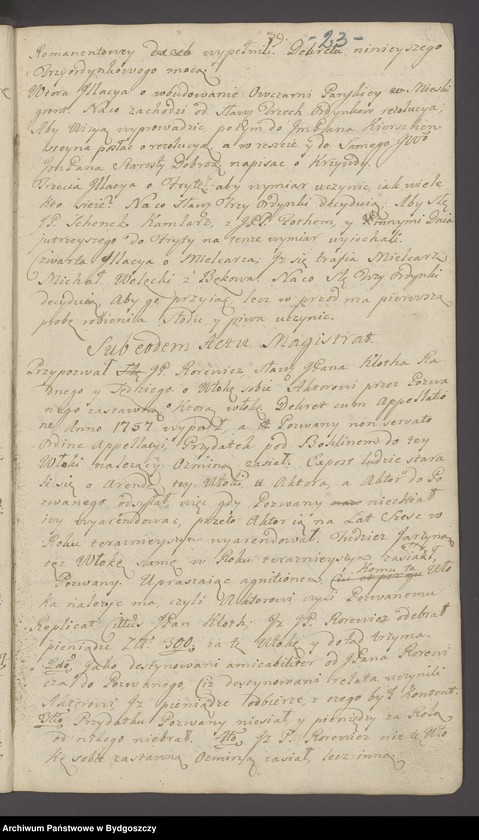 39. -23-
Komanentowey wypełnili. Dekretu ninieyszego
Trzyordynkowego mocą
Wtora Illacya o wybudowanie Owczarni Panskiey w Mieski
gront. Naco zachodzi od Sławy Trzech Ordynkow rezolucya;
Aby Wizyą wyprowadzić, potym do ImPana Kierschen
steyna posłac o rezolucyą, a w reszcie y do Samego JWo
ImPana Starosty Dobrze, napisac o Krzywdy.
Trzecia Illacya o Stryte, aby wymiar uczynic, iak wiele
kto sieie? Naco Sławy Trzy Ordynki decydują; Aby Się
JP. Schenck Kamlarz, z JP. Rothem, y innymi Dnia
jutrzeyszego do Stryty na tenze wymiar wyiechali.
Czwarta Illacya o Mielcarza; Iz się trafia Mielcarz
Michał Wolecki z Bękowa. Naco Się Trzy Ordynki
decydują, Aby go przyiąć, lecz w przod ma pierwszą
probę robienia Słodu y piwa uczynic.
Sub eodem Actu Magistrat.
Przypozwał JP. Rorewicz Sławy JPana Klotha Ra
dnego y Sędziego o Włokę sobie Aktorowi przez Pozwa
nego zastawną o Ktorą włokę Dekret cum Appellatio
ne Anno 1757 wypadł, a Pozwany non servato
Ordine Appellatyi, Przydatek pod Bohlinem do tey
Włoki nalezący Oziminą zasiał. Export ludzie stara
li się o Arendę tey Włoki u Aktora, a Aktor do Po
zwanego odsyłał, więc gdy Pozwany niechciał
iey wyarendować, przeto Aktor ią na Lat Szesc w
Roku terazniejszym wyarendował. Tudziez Jarzyną
tez Włokę samę w Roku terazniejszym zasiał
Pozwany. Upraszaiąc agnitionem, Komu ta Wło
ka nalezyc ma, czyli Aktorowi czyli Pozwanemu
Replicat Ittus JPan Kloth. Iz JP. Rorewicz odebrał
pieniądze Złł. 300, za tę Włokę y dotąd trzyma.
2do Jako destynowani amicabiliter od JPana Rorewi
cza do Pozwanego, (iz destynowani relata uczynili
Aktorowi Iz pieniądze odbierze, z czego był Kontent.
3tio Przydatku Pozwany niesiał, y pieniędzy za Rolą
od nikogo niebrał. 4to Iz P. Rorewicz nie tę Wło
kę sobie zastawną Oziminą zasiał, lecz inną
Archiwum Państwowe w Bydgoszczy